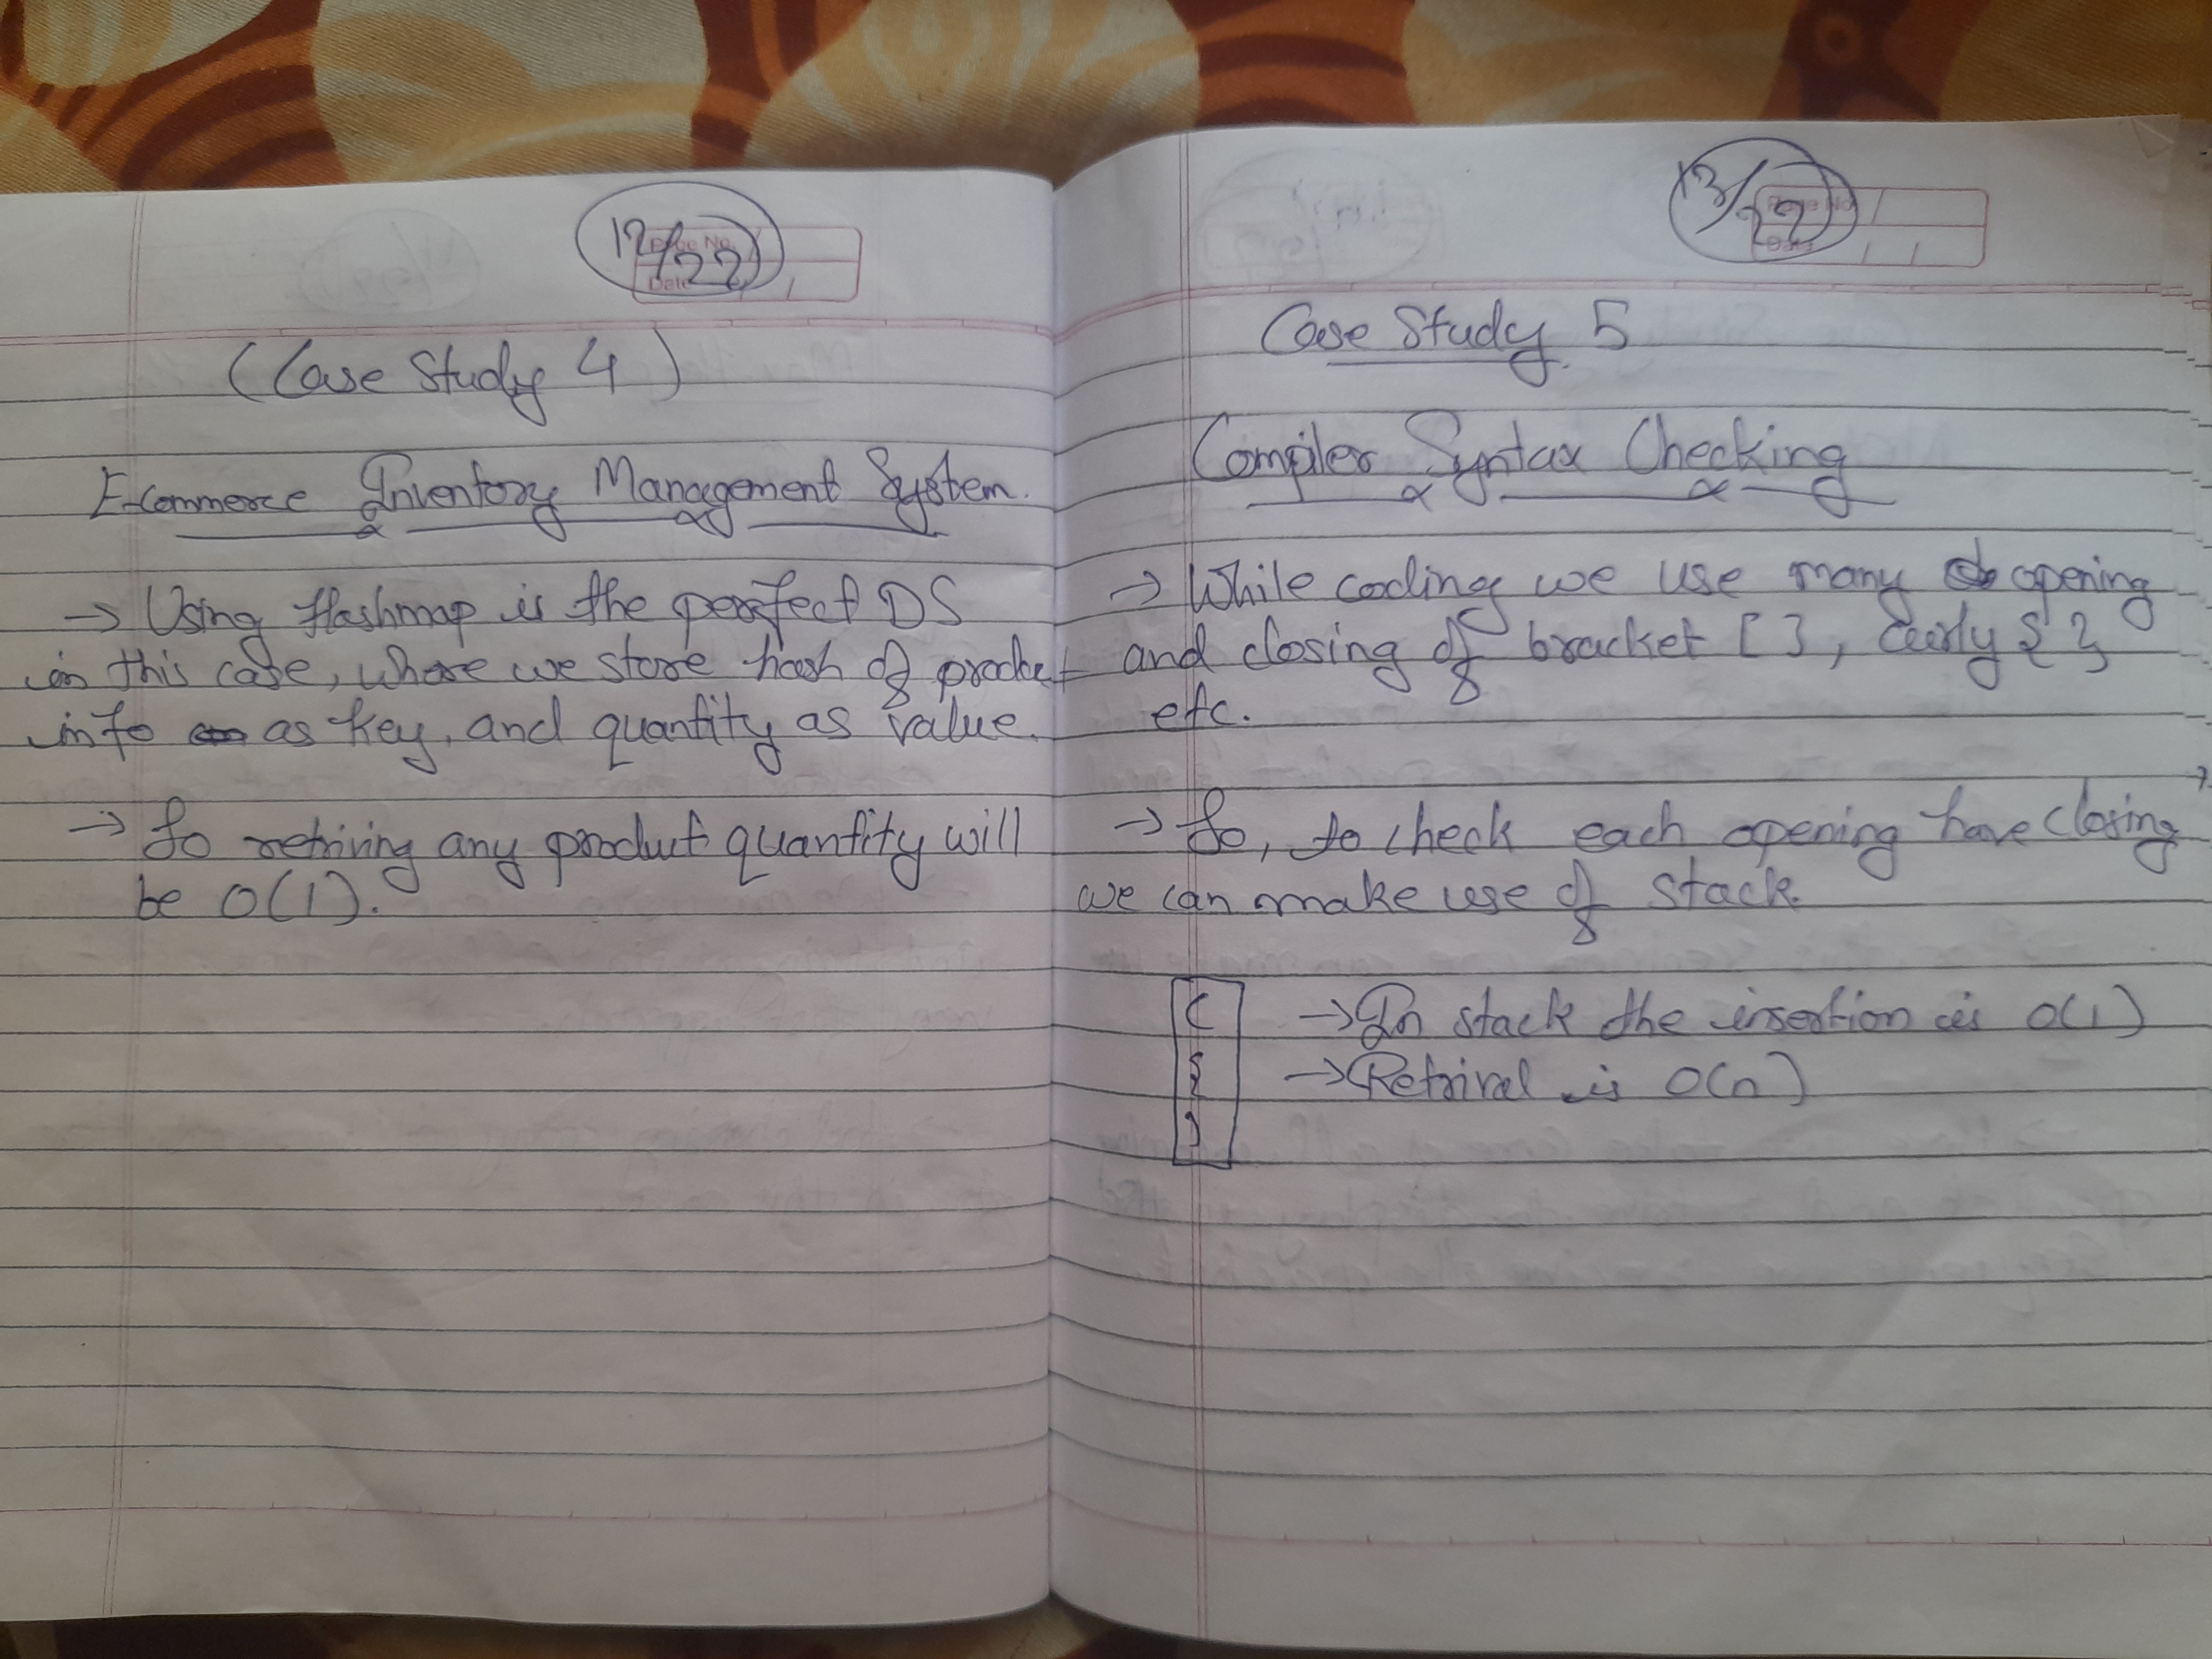 12/22
Page No.
Date
(Case Study 4)
Ecommerce Inventory Management System.
→ Using Hashmap is the perfect DS
in this case, where we store hash of product
info as key, and quantity as value.
→ So retriving any product quantity will
be O(1).
13/22
Page No.
Date
Case Study 5
Compiler Syntax Checking
→ While coding we use many opening
and closing of bracket [ ], curly { }
etc.
→ So, to check each opening have closing,
we can make use of stack.
→ In stack the insertion is O(1)
→ Retrival is O(n)